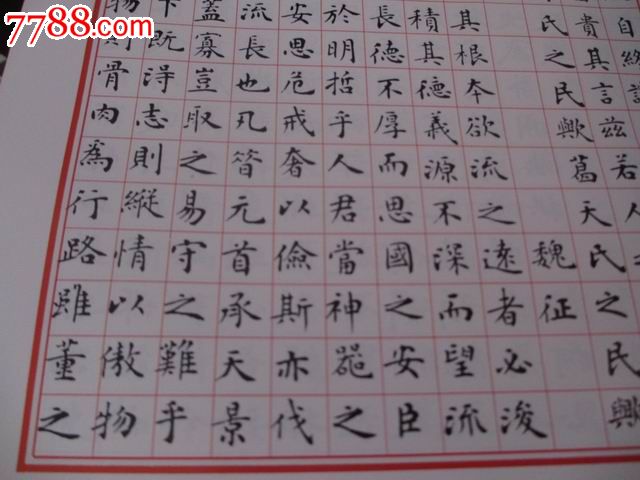 自終
貴其言茲若人
民之民歟葛天民之民歟
魏征
其根本欲流之遠者必浚
積其德義源不深而望流
長德不厚而思國之安臣
於明哲乎人君當神器之
安思危戒奢以儉斯亦伐
流長也凡昔元首承天景
蓋寡豈取之易守之難乎
下既得志則縱情以傲物
物則骨肉為行路雖董之
7788.com